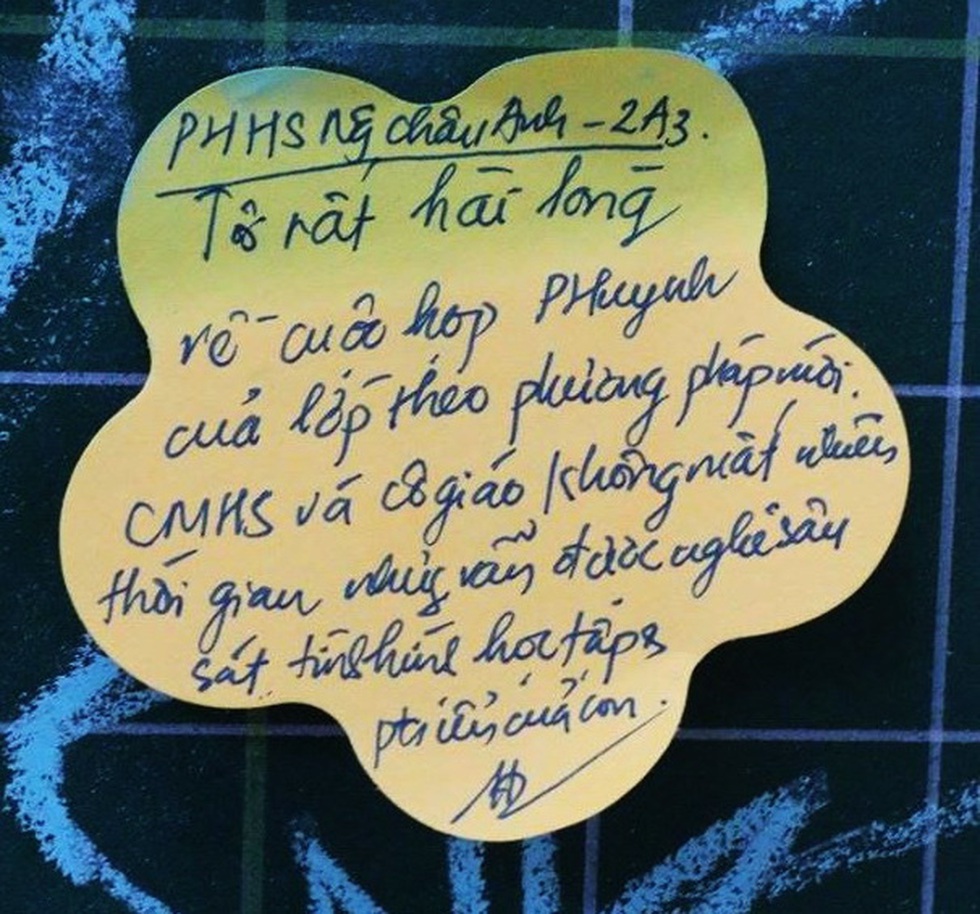 PHHS Ng Châu Anh - 2A3.
Tớ rất hài lòng
về cuộc họp PHuynh
của lớp theo phương pháp mới.
CMHS và cô giáo không mất nhiều
thời gian nhưng vẫn được nghe sâu
sát tình hình học tập &
ptriển của con.